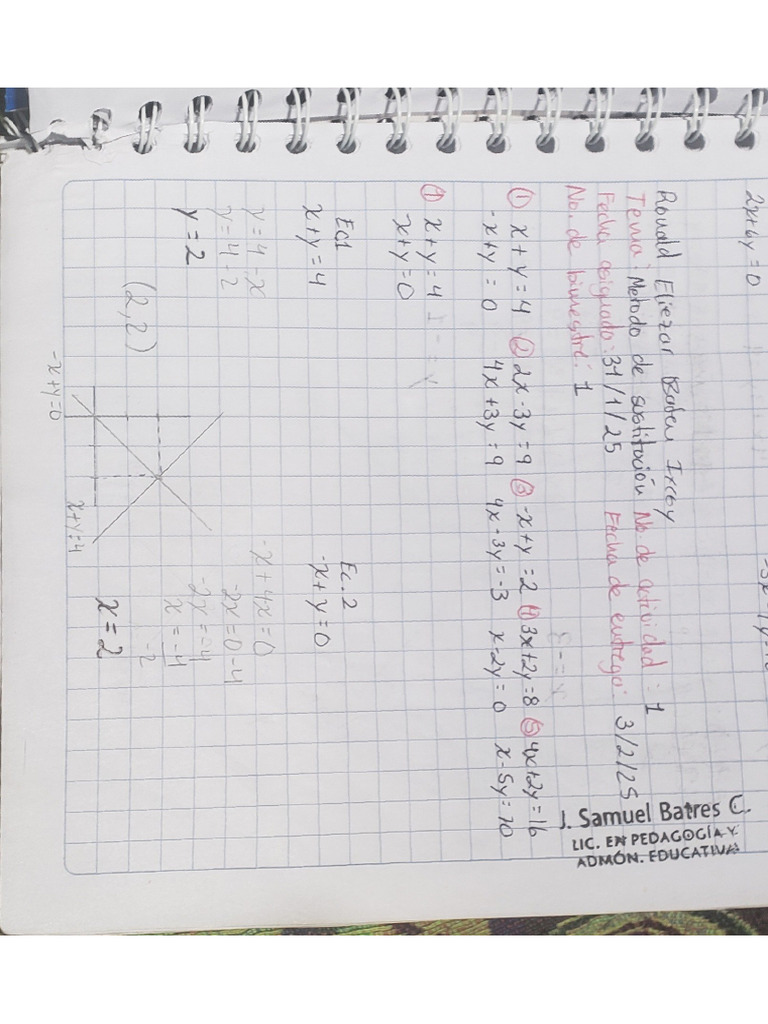 2x+6y=0
Ronald Eliezar Baten Ixcoy
Tema: Metodo de sustitución No. de actividad: 1
Fecha asignado: 31/1/25 Fecha de entrega: 3/2/25
No. de bimestre: 1
J. Samuel Batres C.
LIC. EN PEDAGOGÍA Y
ADMÓN. EDUCATIVA
① x + y = 4 ② 2x - 3y = 9 ③ -x + y = 2 ④ 3x + 2y = 8 ⑤ 4x + 2y = 16
-x + y = 0 4x + 3y = 9 4x - 3y = -3 x - 2y = 0 x - 5y = 10
① x + y = 4
x + y = 0
Ec1 Ec. 2
x + y = 4 -x + y = 0
y = 4 - x
y = 4 - 2
y = 2
-x + 4x = 0
-2x = 0 - 4
-2x = -4
x = -4
-2
x = 2
(2,2)
-x + y = 0
x + y = 4